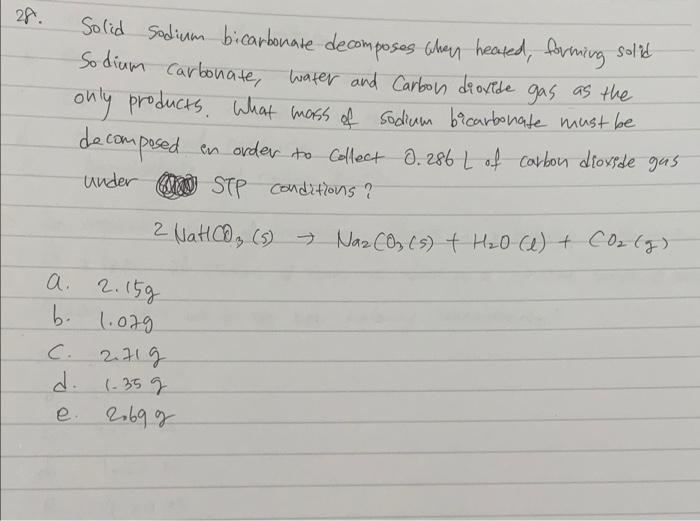 28. Solid Sodium bicarbonate decomposes when heated, forming solid
Sodium Carbonate, water and Carbon dioxide gas as the
only products. What mass of sodium bicarbonate must be
decomposed in order to collect 0.286 L of carbon dioxide gas
under STP conditions?
2 NaHCO₃ (s) → Na₂CO₃ (s) + H₂O (l) + CO₂ (g)
a. 2.15g
b. 1.07g
C. 2.71 g
d. 1.35 g
e. 2.69 g